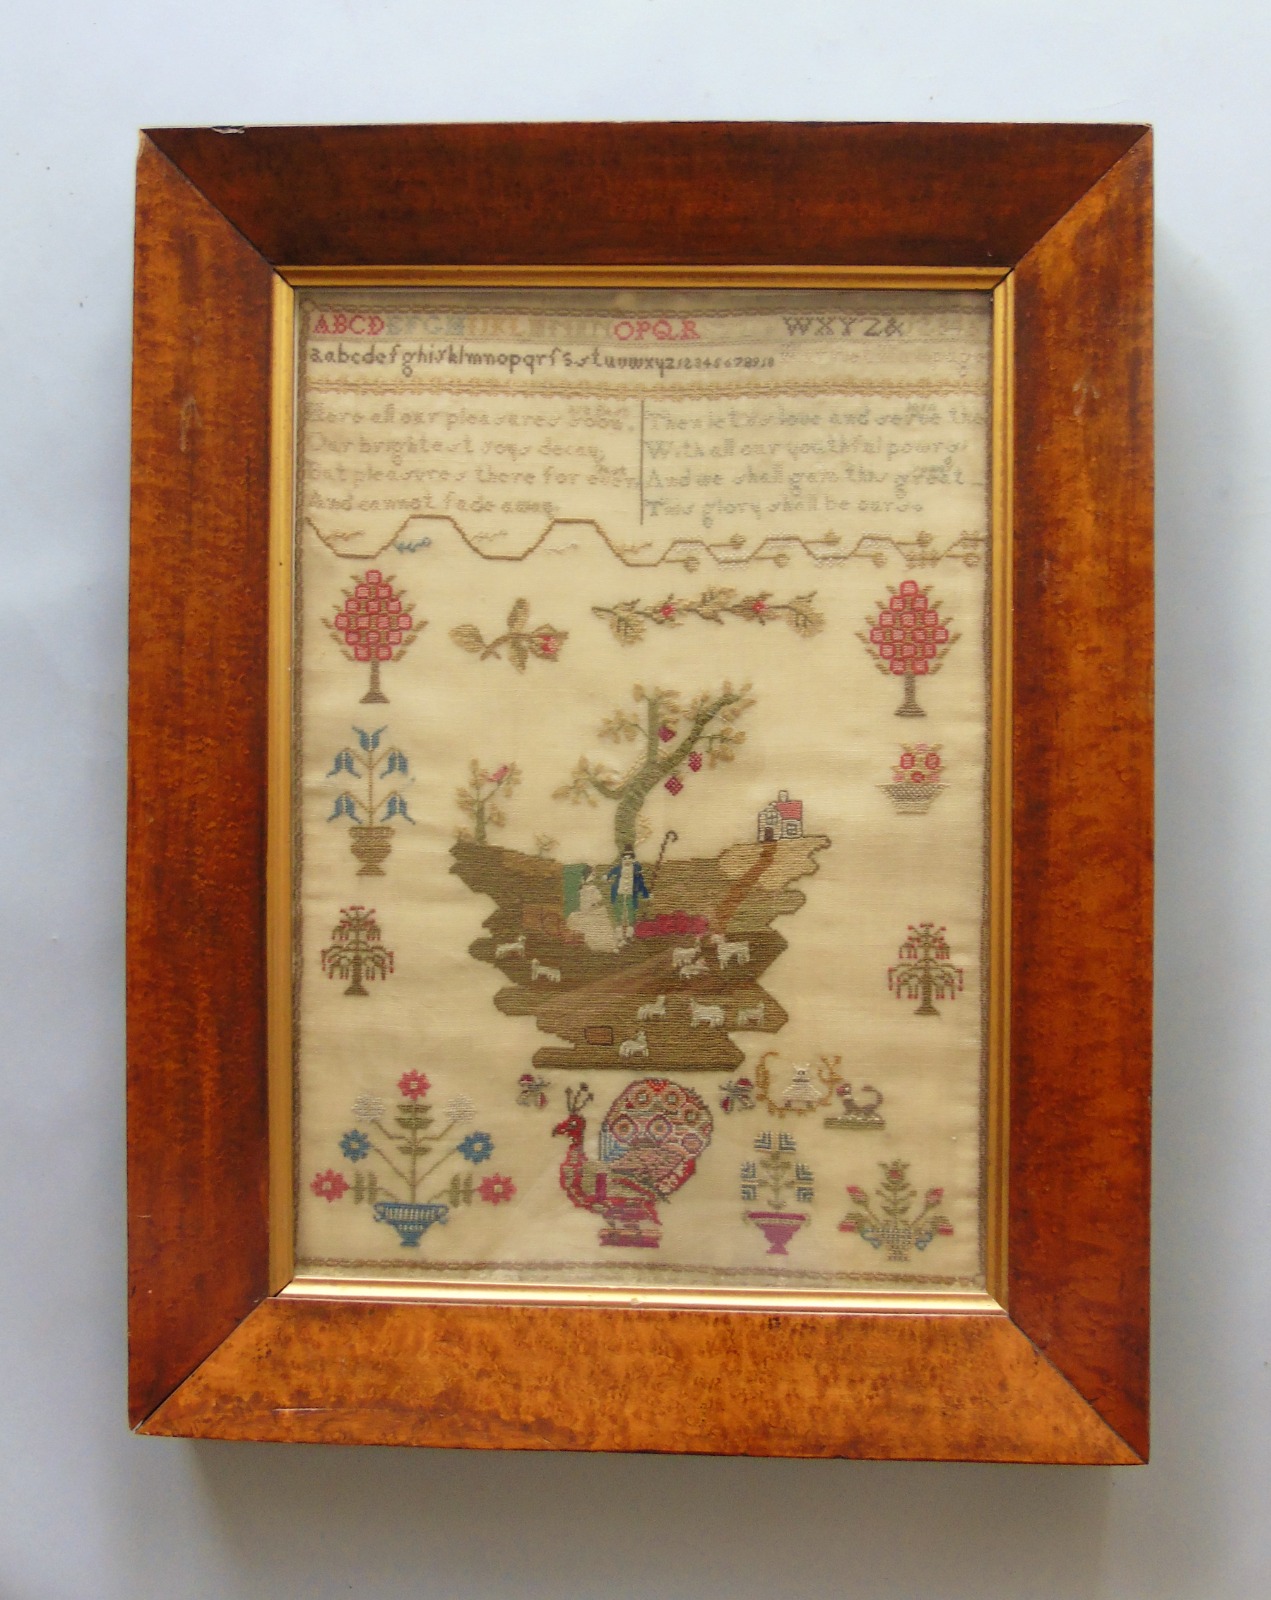 ABCDEFGHIJKLMN OPQR WXYZ&
aabcdefghiklmnopqrſsstuvwxyz12345678910
Here all our pleasures soon
Our brightest joys decay,
But pleasures there for ever
And cannot fade away.
Then let us love and serve the
With all our youthful powrs
And we shall gain this great
This glory shall be ours.